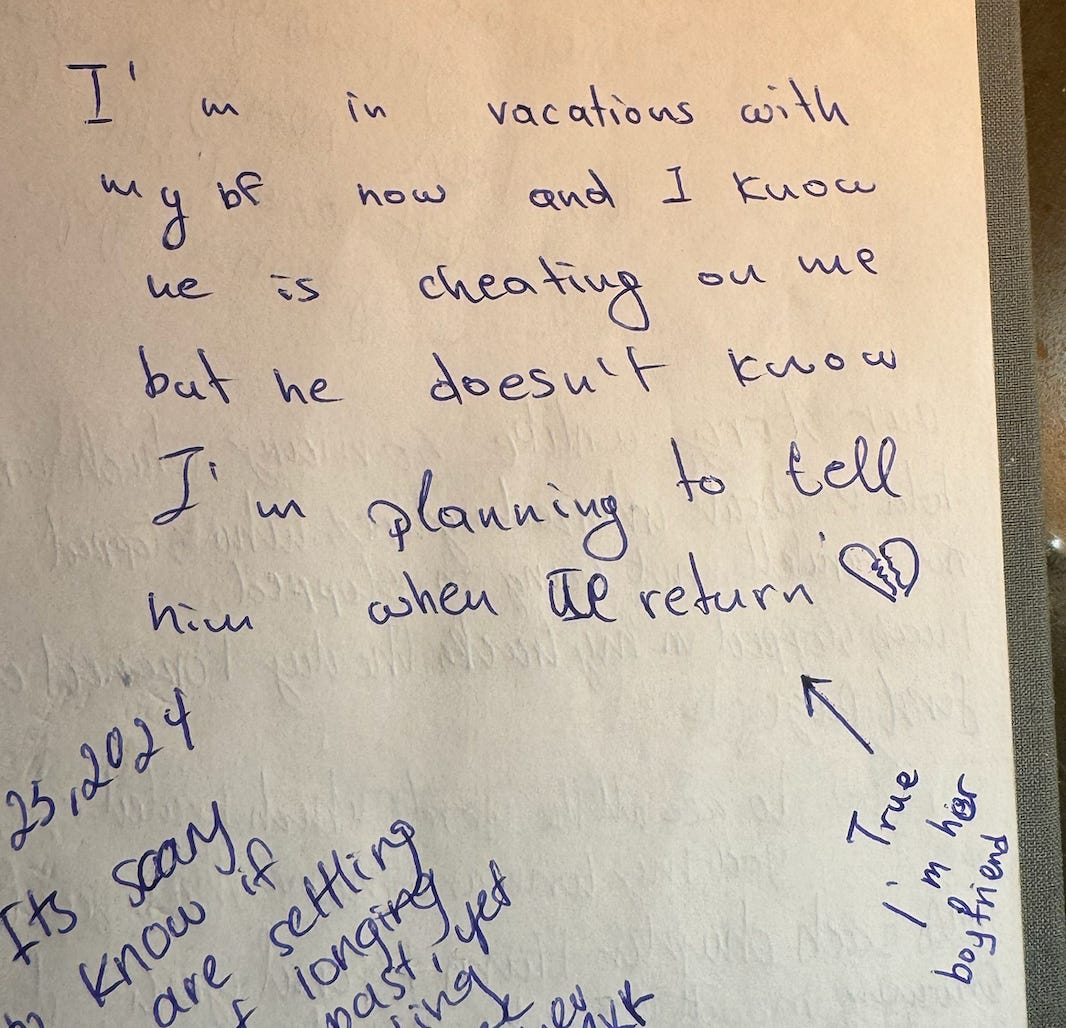 I'm in vacations with
my bf now and I know
he is cheating on me
but he doesn't know
I'm planning to tell
him when return
True
I'm her
boyfriend
25, 2024
Its scary
know if
are settling
longing
past, yet